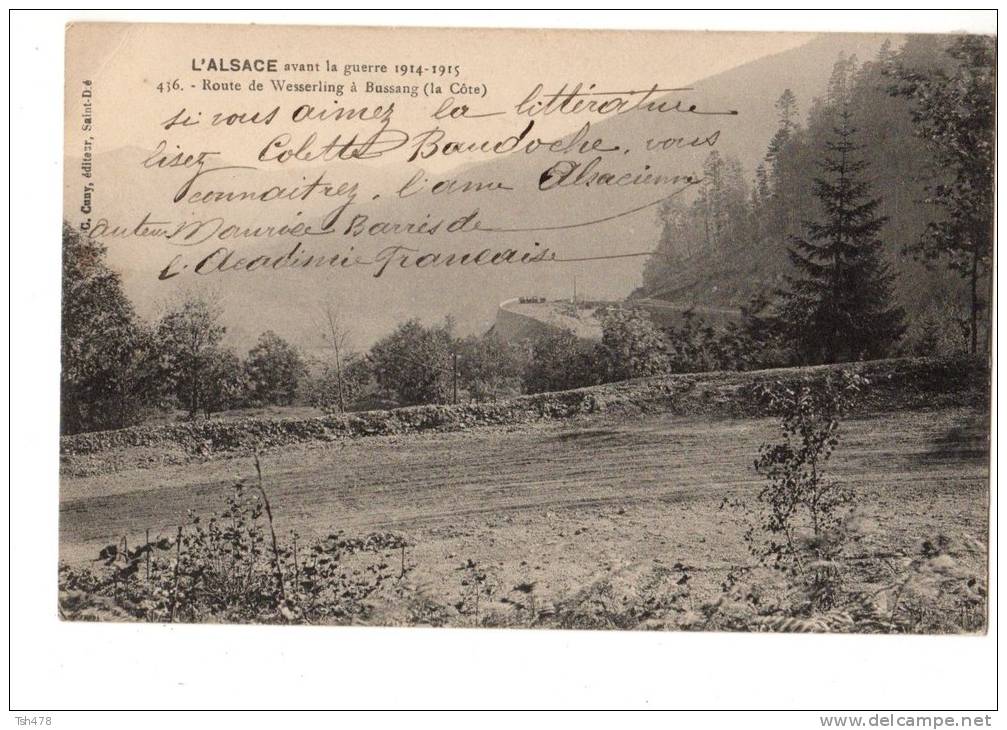 L'ALSACE avant la guerre 1914-1915
436. - Route de Wesserling à Bussang (la Côte)
C. Cuny, éditeur, Saint-Dié
si vous aimez la littérature
lisez Colette Baudoche, vous
connaitrez, l'ame Alsacienne
auteur Maurice Barrès de
l'Académie Française
Tsh478
www.delcampe.net